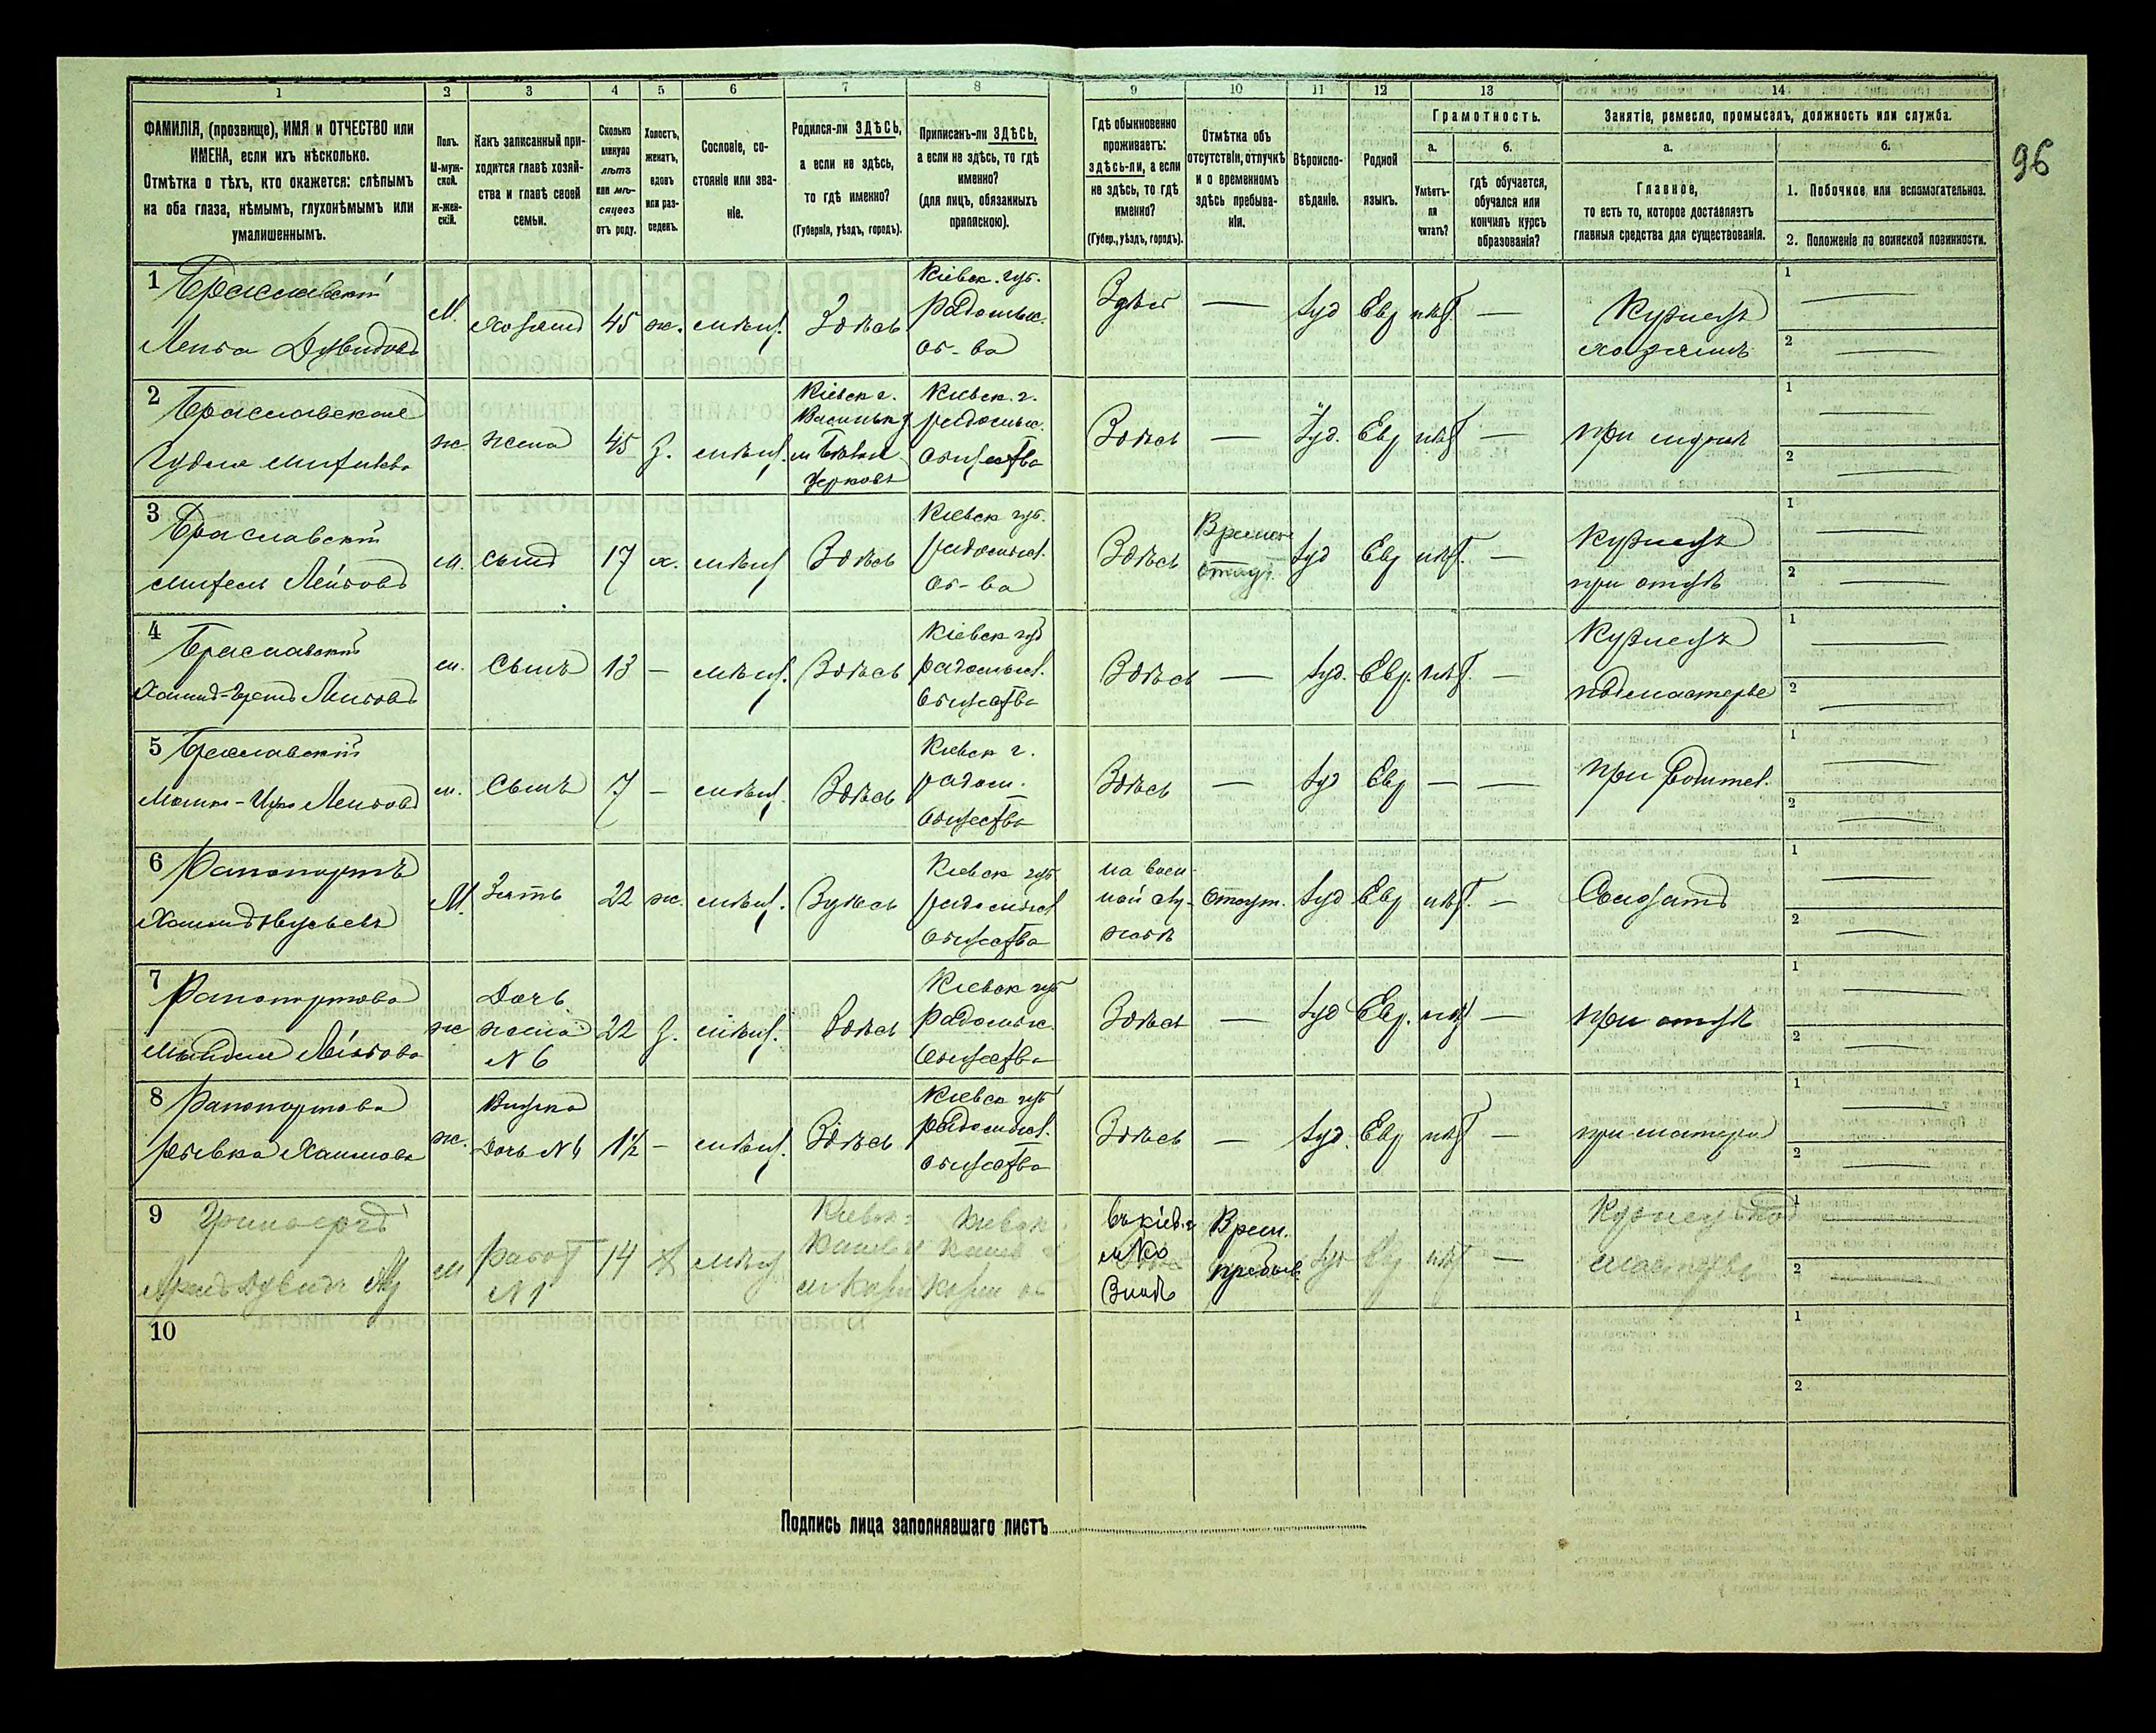 96
1 2 3 4 5 6 7 8 9 10 11 12 13 14
ФАМИЛІЯ, (прозвище), ИМЯ и ОТЧЕСТВО или
ИМЕНА, если ихъ нѣсколько.
Отмѣтка о тѣхъ, кто окажется: слѣпымъ
на оба глаза, нѣмымъ, глухонѣмымъ или
умалишеннымъ.
Полъ.
М-муж-
ской.
Ж-жен-
скій.
Какъ записанный при-
ходится главѣ хозяй-
ства и главѣ своей
семьи.
Сколько
минуло
лѣтъ
или мѣ-
сяцевъ
отъ роду.
Холостъ,
женатъ,
вдовъ
или раз-
веденъ.
Сословіе, со-
стояніе или зва-
ніе.
Родился-ли ЗДѢСЬ,
а если не здѣсь,
то гдѣ именно?
(Губернія, уѣздъ, городъ).
Приписанъ-ли ЗДѢСЬ,
а если не здѣсь, то гдѣ
именно?
(для лицъ, обязанныхъ
припискою).
Гдѣ обыкновенно
проживаетъ:
здѣсь-ли, а если
не здѣсь, то гдѣ
именно?
(Губер., уѣздъ, городъ).
Отмѣтка объ
отсутствіи, отлучкѣ
и о временномъ
здѣсь пребыва-
ніи.
Вѣроиспо-
вѣданіе.
Родной
языкъ.
Грамотность.
а.
Умѣетъ-
ли
читать?
б.
гдѣ обучается,
обучался или
кончилъ курсъ
образованія?
Занятіе, ремесло, промыселъ, должность или служба.
а.
Главное,
то есть то, которое доставляетъ
главныя средства для существованія.
б.
1. Побочное или вспомогательное.
2. Положеніе по воинской повинности.
1 Браславскій
Лейба Дувидовъ
М. хозяинъ 45 ж. мѣщ. Здѣсь
Кіевск. губ.
Радомысл.
об-ва
Здѣсь — Іуд Евр нѣт —
Кузнецъ
хозяинъ
1
2
2 Браславская
жена 45 З. мѣщ.
Кіевск г.
Васильк у
м Бѣлая
Церковь
Кіевск. г.
радомыс.
общества
Здѣсь — Іуд. Евр нѣт —
при мужѣ
1
2
3 Браславскій
Лейбовъ
м. сынъ 17 х. мѣщ Здѣсь
Кіевск губ.
радомысл.
об-ва
Здѣсь
Времен
отсут.
Іуд Евр нѣт. —
Кузнецъ
при отцѣ
1
2
4 Браславскій
Лейбовъ
м. сынъ 13 — мѣщ. Здѣсь
Кіевск губ
радомысл.
общества
Здѣсь — Іуд. Евр. нѣт. —
Кузнецъ
подмастерье
1
2
5 Браславскій
Лейбовъ
м. сынъ 7 — мѣщ. Здѣсь
Кіевск г.
радом.
общества
Здѣсь — Іуд Евр — —
при родител.
1
2
6 Рапопортъ
М. Зять 22 ж. мѣщ. Здѣсь
Кіевск губ
радомысл
общества
на воен-
ной слу-
жбѣ
отсут. Іуд Евр нѣт. —
Солдатъ
1
2
7 Рапопортова
Лейбова
ж
Дочь
жена
N 6
22 З. мѣщ. Здѣсь
Кіевск губ
радомысл.
общества
Здѣсь — Іуд Евр. нѣт —
при отцѣ
1
2
8 Рапопортова
Ривка Хаимова
ж.
Внучка
дочь N 6
1½ — мѣщ. Здѣсь
Кіевск губ
радомысл.
общества
Здѣсь — Іуд. Евр нѣт —
при матери
1
2
9
м
работ
N 1
14 х мѣщ
Кіевск г
Канев у
Кіевск
Канев
въ кіев. г
Врем.
пребыв.
Іуд Евр нѣт —
Кузнец под
мастерье
1
2
10
1
2
Подпись лица заполнявшаго листъ